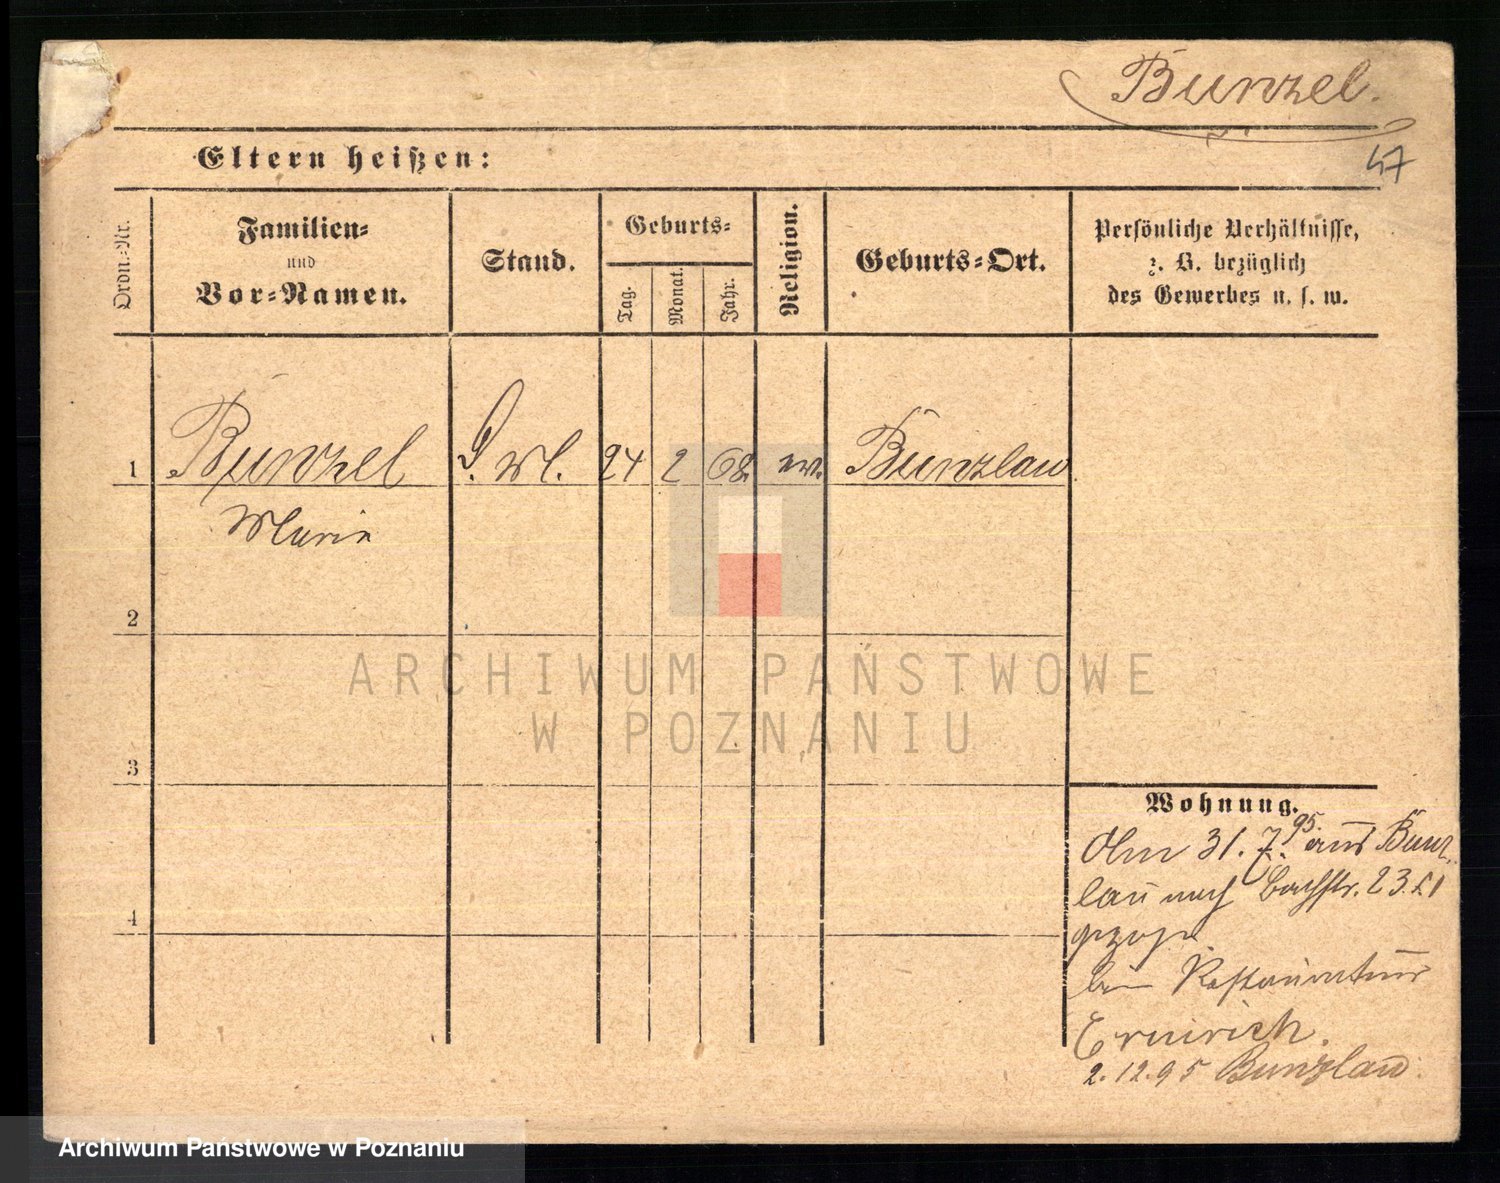 Bunzel.
47
Eltern heißen:
Ordn.-Nr.
Familien-
und
Vor-Namen.
Stand.
Geburts-
Tag.
Monat.
Jahr.
Religion.
Geburts-Ort.
Persönliche Verhältnisse,
z. B. bezüglich
des Gewerbes u. s. w.
1 Bunzel 24 2 68 ev. Bunzlau
Marie
2
3
4
ARCHIWUM PAŃSTWOWE
W POZNANIU
Wohnung.
Am 31.7.95. aus Bunz-
lau nach Bachstr. 23
gezogen
beim Restaurateur
2.12.95 Bunzlau.
Archiwum Państwowe w Poznaniu